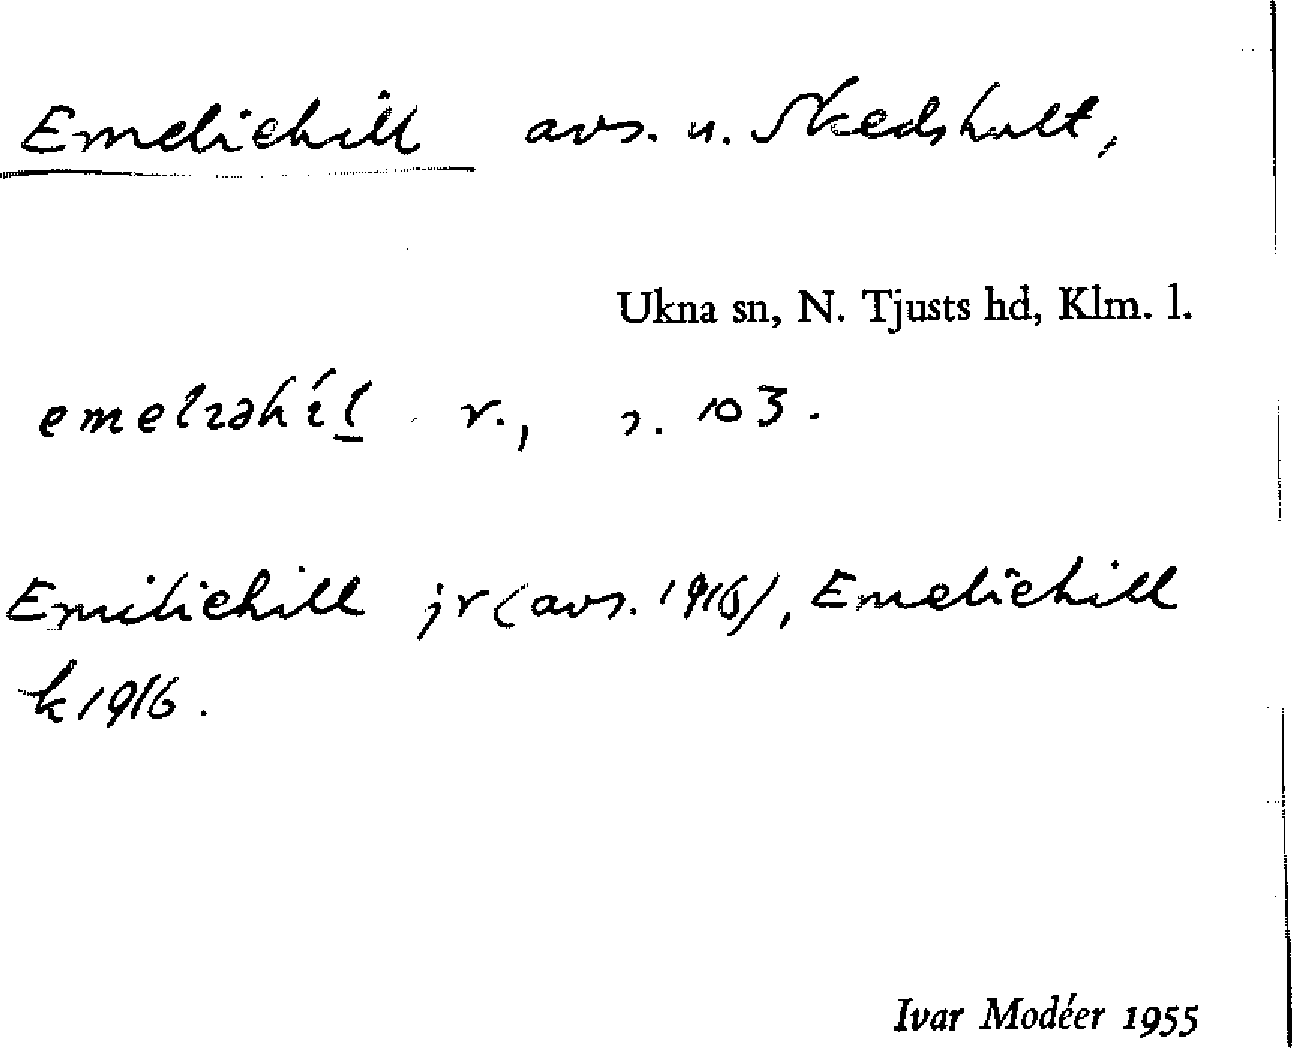 Emeliehill avs. u. Skedshult,
Ukna sn, N. Tjusts hd, Klm. l.
r., s. 103.
Emiliehill jr (avs. 1916), Emeliehill
k 1916.
Ivar Modéer 1955